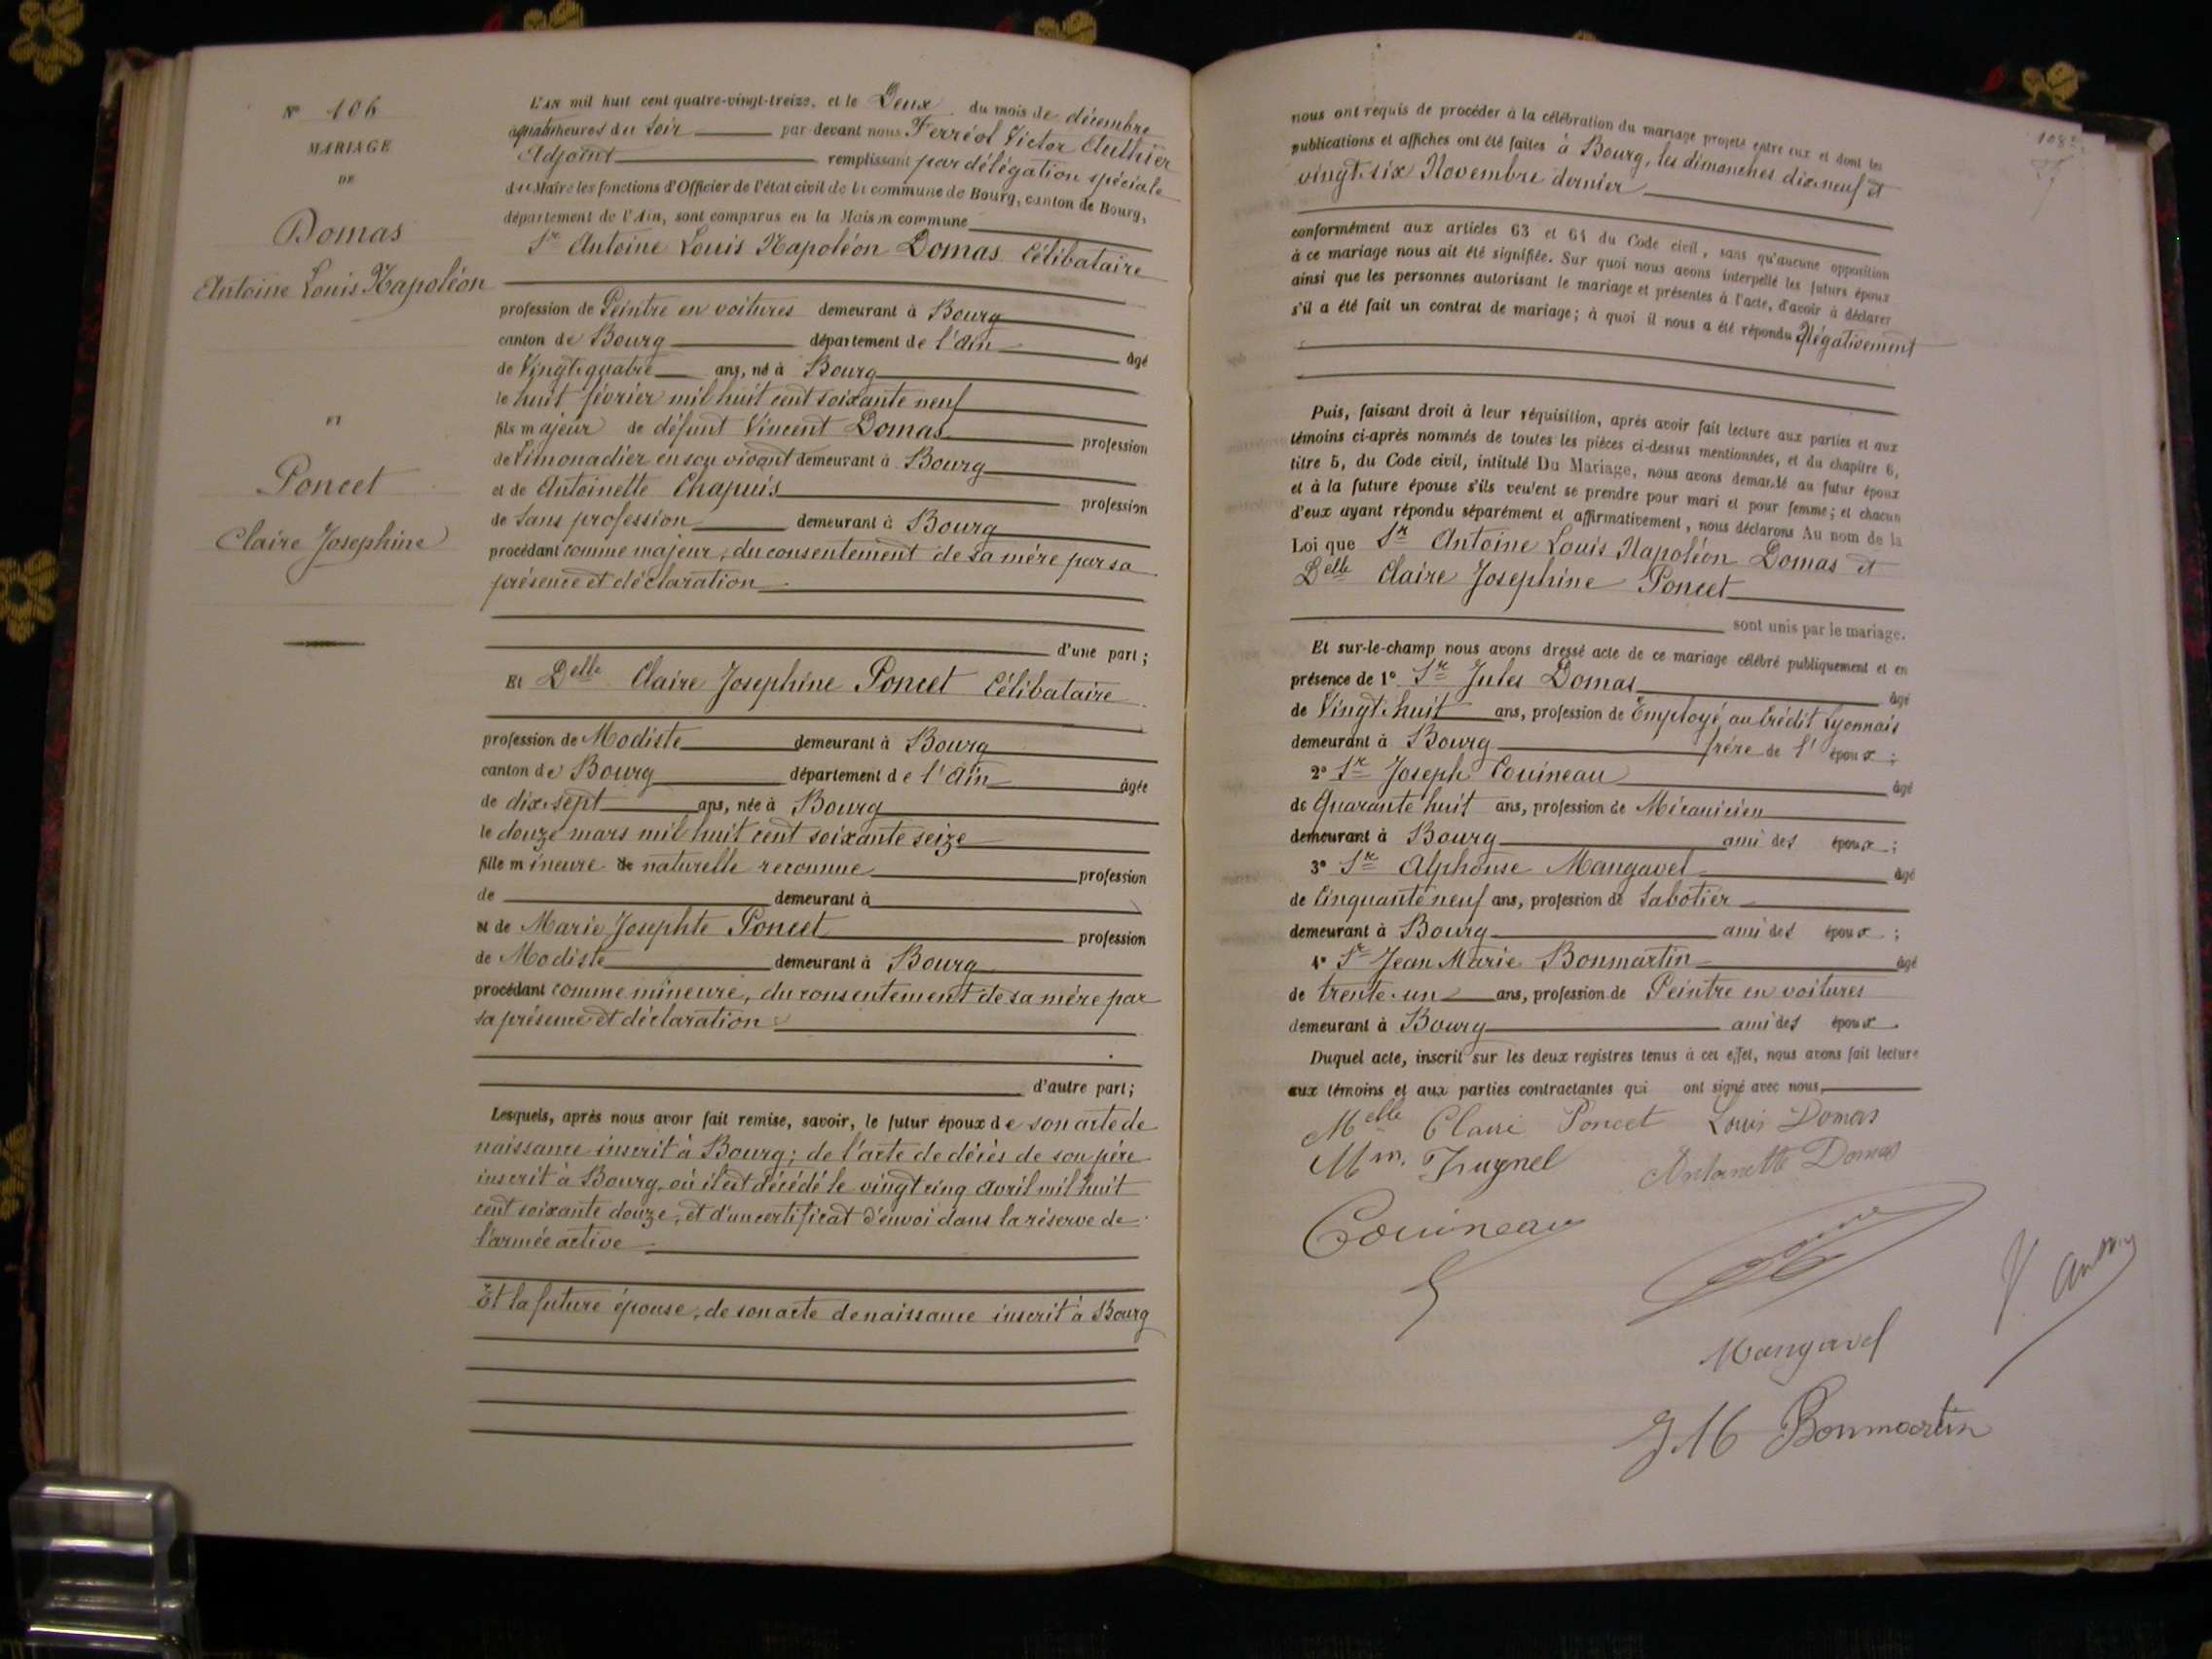 N° 106
MARIAGE
DE
Domas
Antoine Louis Napoléon
ET
Poncet
Claire Josephine
L'AN mil huit cent quatre-vingt-treize, et le Deux du mois de décembre
à quatre heures du soir par devant nous Ferréol Victor Authier
Adjoint remplissant par délégation spéciale
du Maire les fonctions d'Officier de l'état civil de la commune de Bourg, canton de Bourg,
département de l'Ain, sont comparus en la Maison commune
Sr Antoine Louis Napoléon Domas Célibataire
profession de Peintre en voitures demeurant à Bourg
canton de Bourg département de l'Ain âgé
de Vingt-quatre ans, né à Bourg
le huit février mil huit cent soixante neuf
fils majeur de défunt Vincent Domas profession
de Limonadier en son vivant demeurant à Bourg
et de Antoinette Chapuis profession
de sans profession demeurant à Bourg
procédant comme majeur, du consentement de sa mère par sa
présence et déclaration
d'une part;
Et Delle Claire Josephine Poncet Célibataire
profession de Modiste demeurant à Bourg
canton de Bourg département de l'Ain âgée
de dix-sept ans, née à Bourg
le douze mars mil huit cent soixante seize
fille mineure de naturelle reconnue profession
de demeurant à
et de Marie Josephte Poncet profession
de Modiste demeurant à Bourg
procédant comme mineure, du consentement de sa mère par
sa présence et déclaration
d'autre part;
Lesquels, après nous avoir fait remise, savoir, le futur époux de son acte de
naissance inscrit à Bourg; de l'acte de décès de son père
inscrit à Bourg, où il est décédé le vingt cinq avril mil huit
cent soixante douze, et d'un certificat d'envoi dans la réserve de
l'armée active
Et la future épouse, de son acte de naissance inscrit à Bourg
108
nous ont requis de procéder à la célébration du mariage projeté entre eux et dont les
publications et affiches ont été faites à Bourg, les dimanches dix-neuf et
vingt-six Novembre dernier
conformément aux articles 63 et 64 du Code civil, sans qu'aucune opposition
à ce mariage nous ait été signifiée. Sur quoi nous avons interpellé les futurs époux
ainsi que les personnes autorisant le mariage et présentes à l'acte, d'avoir à déclarer
s'il a été fait un contrat de mariage; à quoi il nous a été répondu Négativement
Puis, faisant droit à leur réquisition, après avoir fait lecture aux parties et aux
témoins ci-après nommés de toutes les pièces ci-dessus mentionnées, et du chapitre 6,
titre 5, du Code civil, intitulé Du Mariage, nous avons demandé au futur époux
et à la future épouse s'ils veulent se prendre pour mari et pour femme; et chacun
d'eux ayant répondu séparément et affirmativement, nous déclarons Au nom de la
Loi que Sr Antoine Louis Napoléon Domas et
Delle Claire Josephine Poncet
sont unis par le mariage.
Et sur-le-champ nous avons dressé acte de ce mariage célébré publiquement et en
présence de 1° Sr Jules Domas âgé
de Vingt-huit ans, profession de Employé au Crédit Lyonnais
demeurant à Bourg frère de l'époux;
2° Sr Joseph Couineau âgé
de Quarante huit ans, profession de Mécanicien
demeurant à Bourg ami des époux;
3° Sr Alphonse Mangavel âgé
de Cinquante neuf ans, profession de Sabotier
demeurant à Bourg ami des époux;
4° Sr Jean Marie Bonmartin âgé
de trente-un ans, profession de Peintre en voitures
demeurant à Bourg ami des époux.
Duquel acte, inscrit sur les deux registres tenus à cet effet, nous avons fait lecture
aux témoins et aux parties contractantes qui ont signé avec nous,
Melle Claire Poncet Louis Domas
Antoinette Domas
Couineau
Mangavel
JM Bonmartin